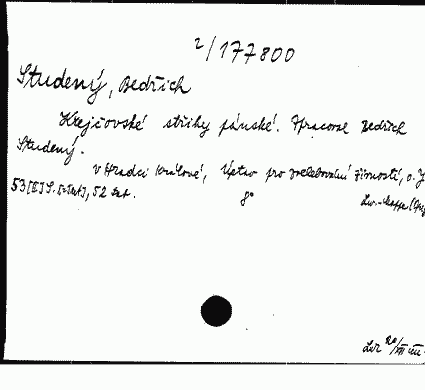 2/177800
Studený, Bedřich
Krejčovské střihy pánské. Zpracoval Bedřich
Studený.
v Hradci Králové, Ústav pro zvelebování živností, o. J.
53 [II] S. 52 Taf.
8°